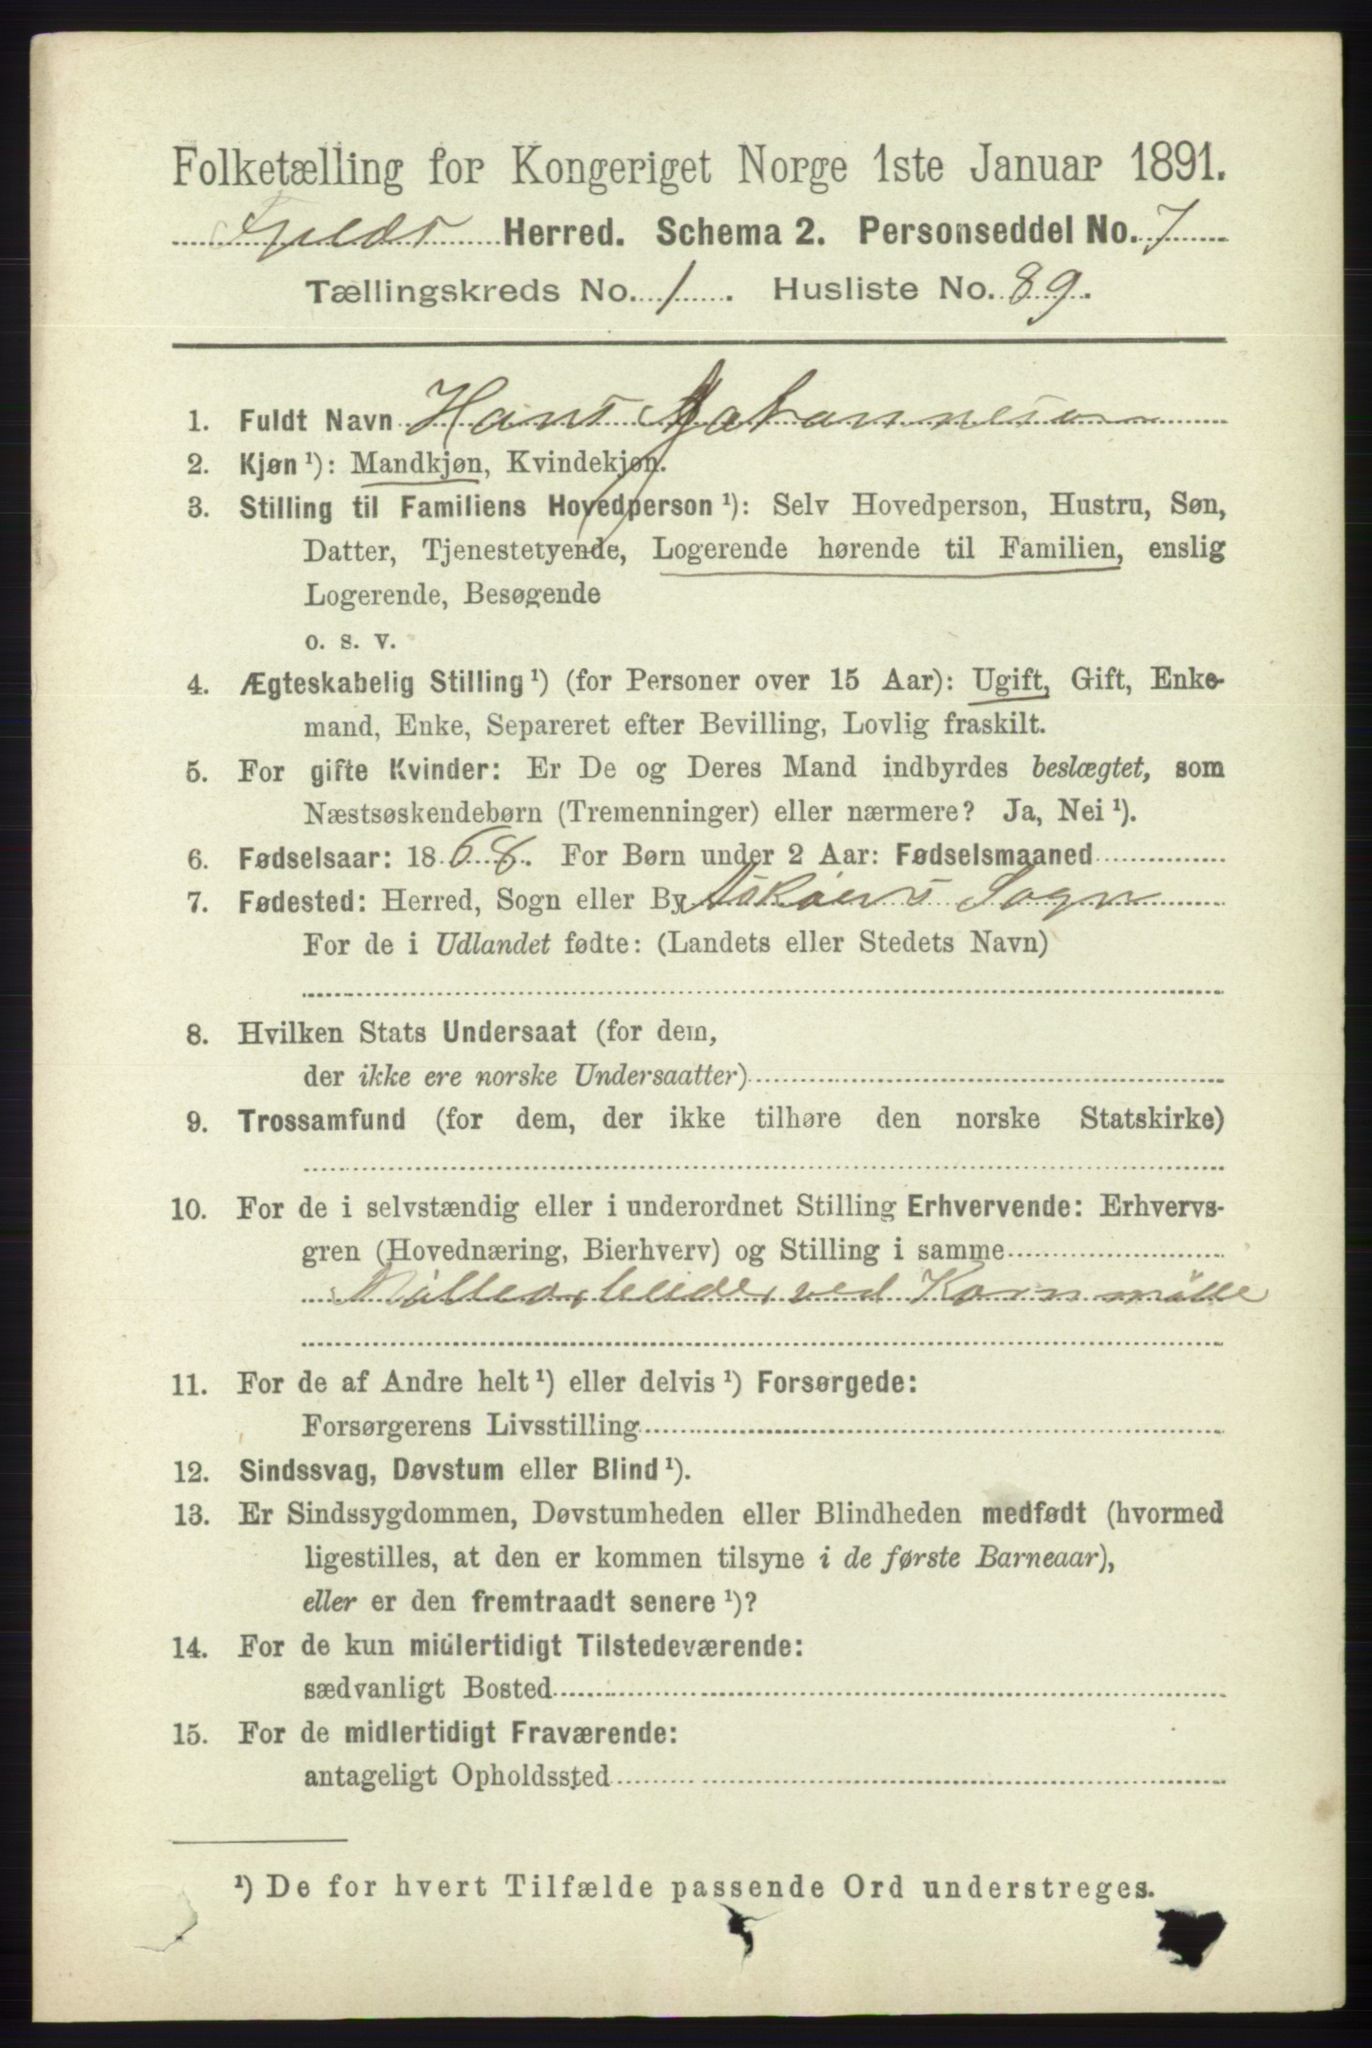 Folketælling for Kongeriget Norge 1ste Januar 1891.
Fjelds Herred. Schema 2. Personseddel No. 7
Tællingskreds No. 1. Husliste No. 89.
1. Fuldt Navn Hans Johannesen
2. Kjøn ¹): Mandkjøn, Kvindekjøn.
3. Stilling til Familiens Hovedperson ¹): Selv Hovedperson, Hustru, Søn,
Datter, Tjenestetyende, Logerende hørende til Familien, enslig
Logerende, Besøgende
o. s. v.
4. Ægteskabelig Stilling ¹) (for Personer over 15 Aar): Ugift, Gift, Enke-
mand, Enke, Separeret efter Bevilling, Lovlig fraskilt.
5. For gifte Kvinder: Er De og Deres Mand indbyrdes beslægtet, som
Næstsøskendebørn (Tremenninger) eller nærmere? Ja, Nei ¹).
6. Fødselsaar: 1868. For Børn under 2 Aar: Fødselsmaaned
7. Fødested: Herred, Sogn eller By Askøens Sogn
For de i Udlandet fødte: (Landets eller Stedets Navn)
8. Hvilken Stats Undersaat (for dem,
der ikke ere norske Undersaatter)
9. Trossamfund (for dem, der ikke tilhøre den norske Statskirke)
10. For de i selvstændig eller i underordnet Stilling Erhvervende: Erhvervs-
gren (Hovednæring, Bierhverv) og Stilling i samme
Møllearbeider ved Kornmølle
11. For de af Andre helt ¹) eller delvis ¹) Forsørgede:
Forsørgerens Livsstilling
12. Sindssvag, Døvstum eller Blind ¹).
13. Er Sindssygdommen, Døvstumheden eller Blindheden medfødt (hvormed
ligestilles, at den er kommen tilsyne i de første Barneaar),
eller er den fremtraadt senere ¹)?
14. For de kun midlertidigt Tilstedeværende:
sædvanligt Bosted
15. For de midlertidigt Fraværende:
antageligt Opholdssted
¹) De for hvert Tilfælde passende Ord understreges.